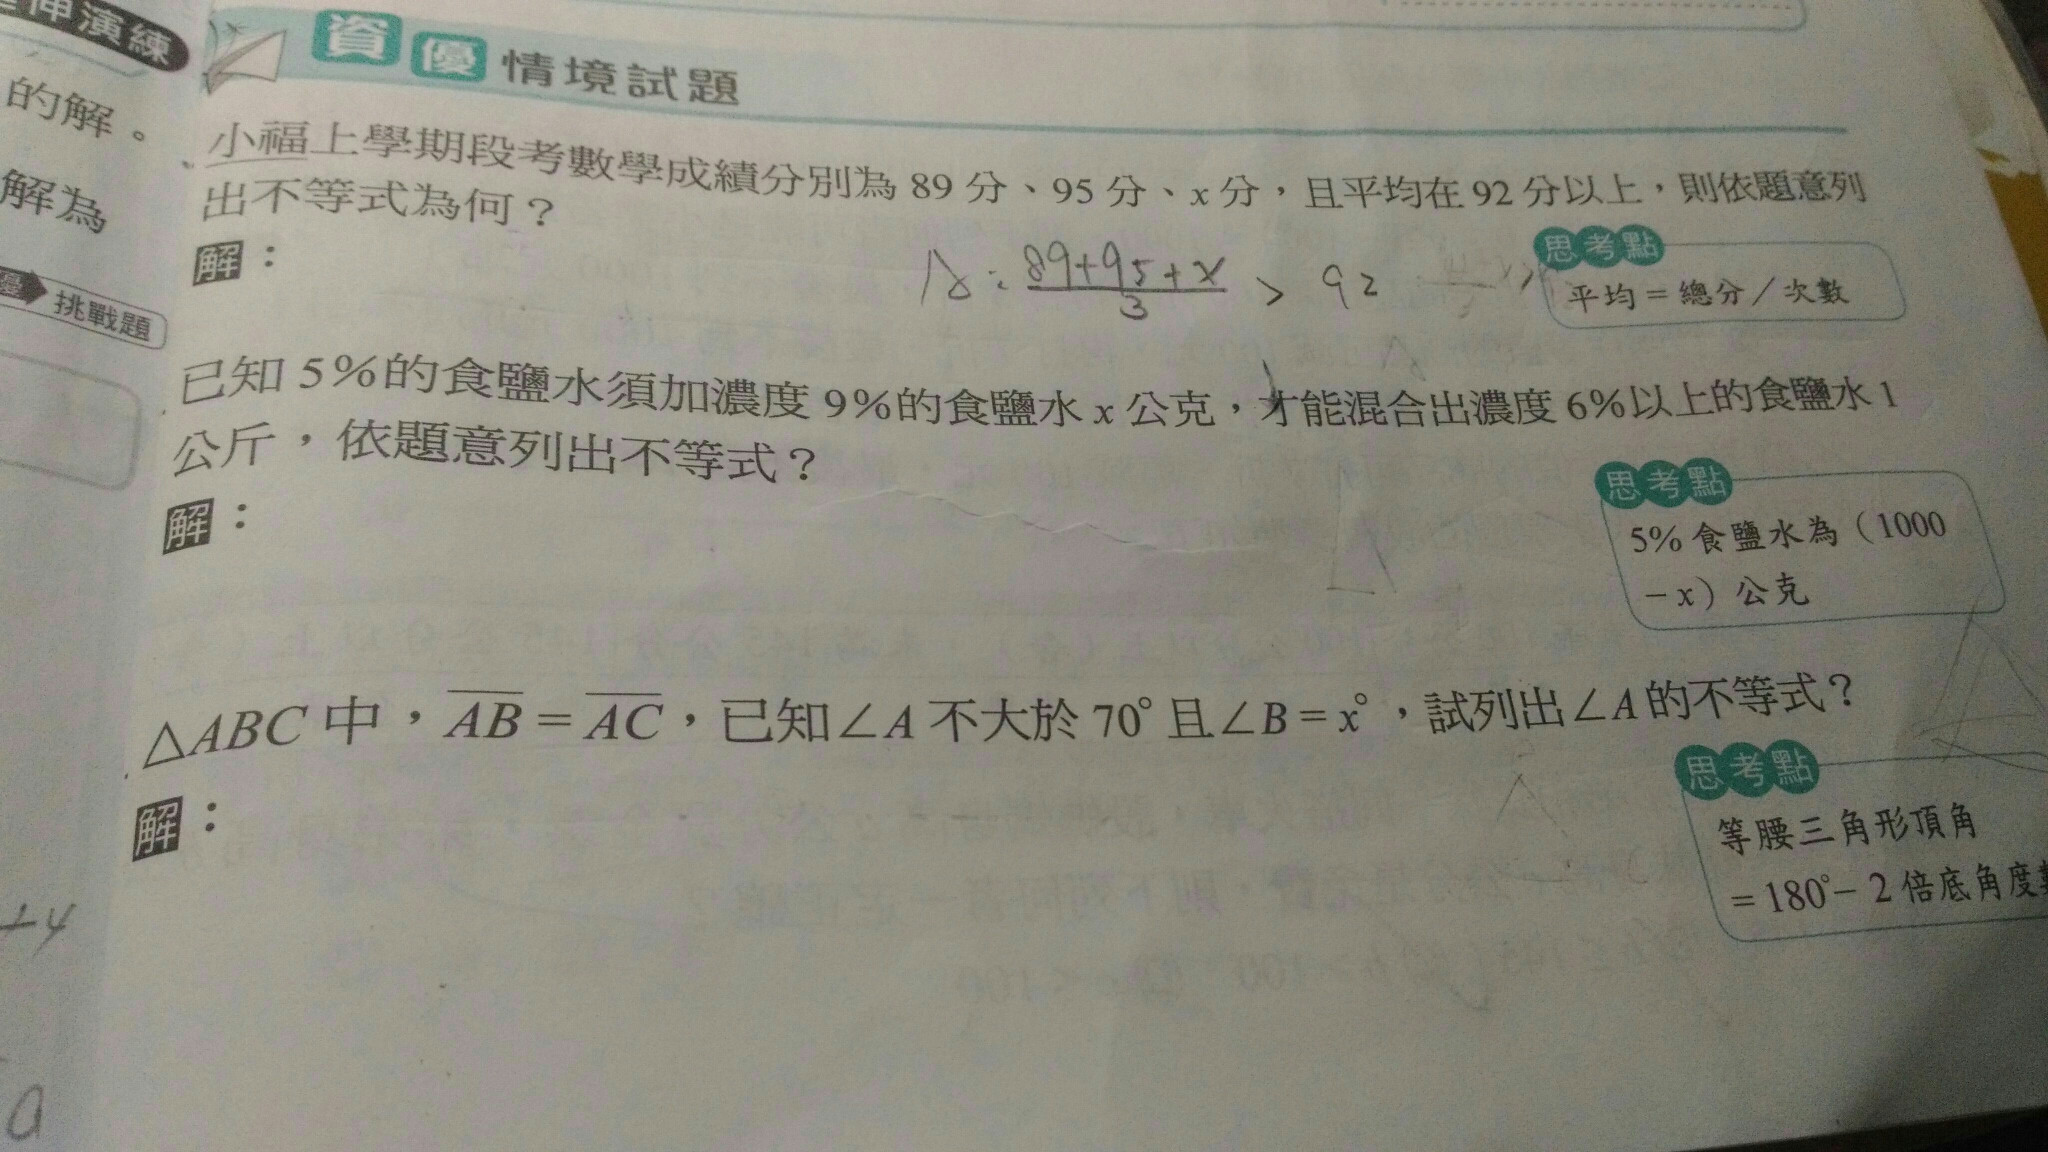 伸演練
的解。
解為
挑戰題
+4
a
資優情境試題
小福上學期段考數學成績分別為 89 分、95 分、x 分，且平均在 92 分以上，則依題意列
出不等式為何？
解：
A: (89+95+x)/3 > 92
思考點
平均＝總分／次數
已知 5％的食鹽水須加濃度 9％的食鹽水 x 公克，才能混合出濃度 6％以上的食鹽水 1
公斤，依題意列出不等式？
解：
思考點
5% 食鹽水為（1000
－x）公克
△ABC 中，A̅B̅ = A̅C̅，已知∠A 不大於 70° 且∠B = x°，試列出∠A 的不等式？
解：
思考點
等腰三角形頂角
＝180°－2 倍底角度